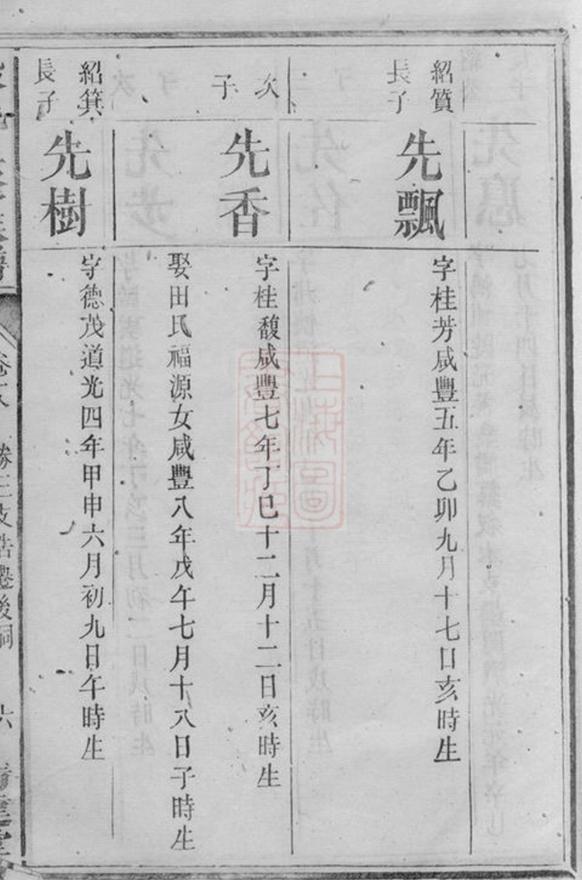 紹質
長子
先飄
字桂芳咸豐五年乙卯九月十七日亥時生
次子
先香
字桂馥咸豐七年丁巳十二月十二日亥時生
娶田氏福源女咸豐八年戊午七月十八日子時生
紹箕
長子
先樹
字德茂道光四年甲申六月初九日午時生